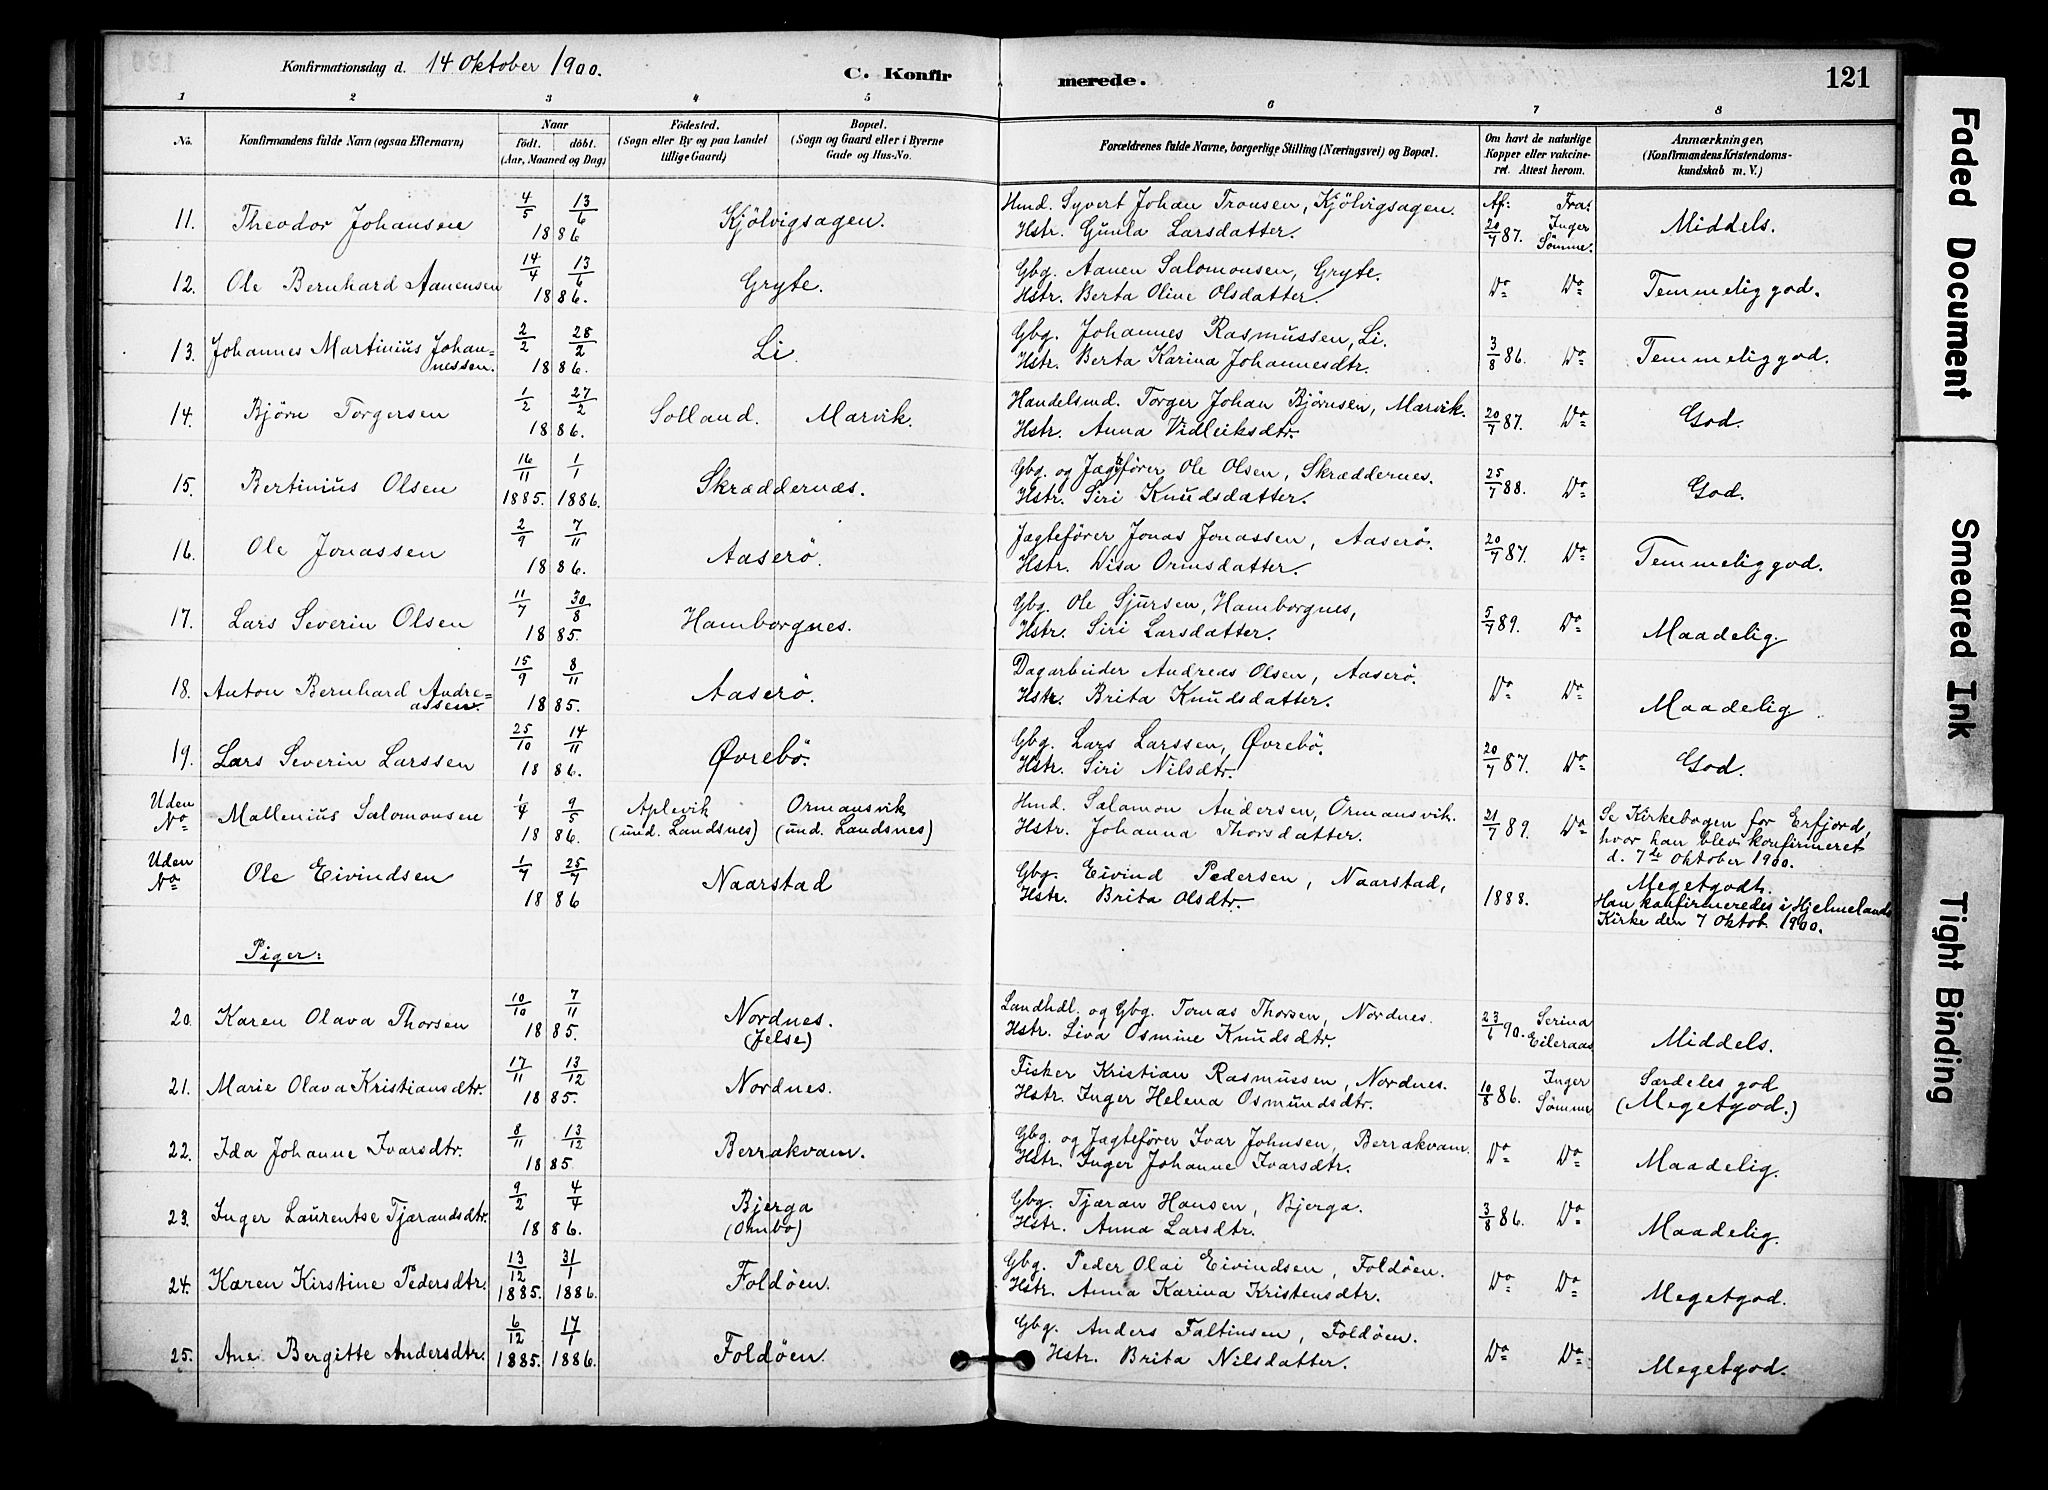 Konfirmationsdag d. 14 Oktober 1900.
C. Konfirmerede.
121
1 2 3 4 5 6 7 8
No.
Konfirmandens fulde Navn (ogsaa Efternavn)
Naar
födt. döbt.
(Aar, Maaned og Dag)
Födested.
(Sogn eller By og paa Landet
tillige Gaard)
Bopæl.
(Sogn og Gaard eller i Byerne
Gade og Hus-No.
Forældrenes fulde Navne, borgerlige Stilling (Næringsvei) og Bopæl.
Om havt de naturlige
Kopper eller vakcine-
ret. Attest herom.
Anmærkninger,
(Konfirmandens Kristendoms-
kundskab m. V.)
11. Theodor Johansen 4/5 13/6 1886 Kjölvigsagen. Hmd. Syvert Johan Tronsen, Kjölvigsagen. Af: Fra:
Hstr. Gunla Larsdatter. 20/7 87. Inger Sömme. Middels.
12. Ole Bernhard Aanensen 14/4 13/6 1886. Gryte. Gbg. Aanen Salomonsen, Gryte.
Hstr. Berta Oline Olsdatter. Do Do Temmelig god.
13. Johannes Martinius Johan-
nessen. 2/2 28/2 1886. Li. Gbg. Johannes Rasmussen, Li.
Hstr. Berta Karina Johannesdtr. 3/8 86. Do Temmelig god.
14. Björn Torgersen 1/2 27/2 1886. Solland. Marvik. Handelsmd. Torger Johan Björnsen, Marvik.
Hstr. Anna Vidleiksdtr. 20/7 87. Do God.
15. Bertinius Olsen 16/11 1885. 1/1 1886. Skræddernæs. Gbg. og Jagtfører Ole Olsen, Skræddernes.
Hstr. Siri Knudsdatter. 25/7 88. Do God.
16. Ole Jonassen 2/9 7/11 1886. Aaserö. Jagtefører Jonas Jonassen, Aaserö.
Hstr. Wisa Ormsdatter. 20/7 87. Do Temmelig god.
17. Lars Severin Olsen 11/7 30/8 1885. Hamborgnes. Gbg. Ole Sjursen, Hamborgnes,
Hstr. Siri Larsdatter. 5/7 89. Do Maadelig.
18. Anton Bernhard Andre-
assen. 15/9 8/11 1885. Aaserö. Dagarbeider Andreas Olsen, Aaserö.
Hstr. Brita Knudsdatter. Do Do Maadelig
19. Lars Severin Larssen 25/10 14/11 1886. Øvrebö. Gbg. Lars Larssen, Øvrebö.
Hstr. Siri Nilsdtr. 20/7 87. Do God.
Uden
No Mallenius Salomonsen 1/4 9/5 1886. Aplevik
(und. Landsnes) Ormansvik
(und. Landsnes) Hmd. Salamon Andersen, Ormansvik.
Hstr. Johanna Thorsdatter. 21/7 89. Do Se Kirkebogen for Erfjord,
hvor han blev konfirmeret
d. 7de Oktober 1900.
Uden
No Ole Eivindsen 1/7 25/7 1886 Naarstad Gbg. Eivind Pedersen, Naarstad,
Hstr. Brita Olsdtr. 1888. Megetgodt.
Han konfirmeredes i Hjelmelands
Kirke den 7 Oktob. 1900.
Piger:
20. Karen Olava Thorsen 10/10 7/11 1885. Nordnes.
(Jelse) Landhdl. og Gbg. Tomas Thorsen, Nordnes.
Hstr. Liva Osmine Knudsdtr. 23/6 90. Serina
Eileraas Middels.
21. Marie Olava Kristiansdtr. 17/11 13/12 1885. Nordnes. Fisker Kristian Rasmussen, Nordnes.
Hstr. Inger Helena Osmundsdtr. 10/8 86. Inger
Sömme Særdeles god
(Megetgod.)
22. Ida Johanne Ivarsdtr. 8/11 13/12 1885. Berrakvam. Gbg. og Jagtefører Ivar Johnsen, Berrakvam.
Hstr. Inger Johanne Ivarsdtr. Do Do Maadelig.
23. Inger Laurentse Tjærandsdtr. 9/2 4/4 1886. Bjerga
(Ombo) Gbg. Tjæran Hansen, Bjerga.
Hstr. Anna Larsdtr. 3/8 86. Do Maadelig.
24. Karen Kirstine Pedersdtr. 13/12 1885. 31/1 1886. Foldöen. Gbg. Peder Olai Eivindsen, Foldöen.
Hstr. Anna Karina Kristensdtr. Do Do Megetgod.
25. Ane Bergitte Andersdtr. 6/12 1885. 17/1 1886. Foldöen. Gbg. Anders Faltinsen, Foldöen.
Hstr. Brita Nilsdatter. Do Do Megetgod.
Faded Document
Smeared Ink
Tight Binding